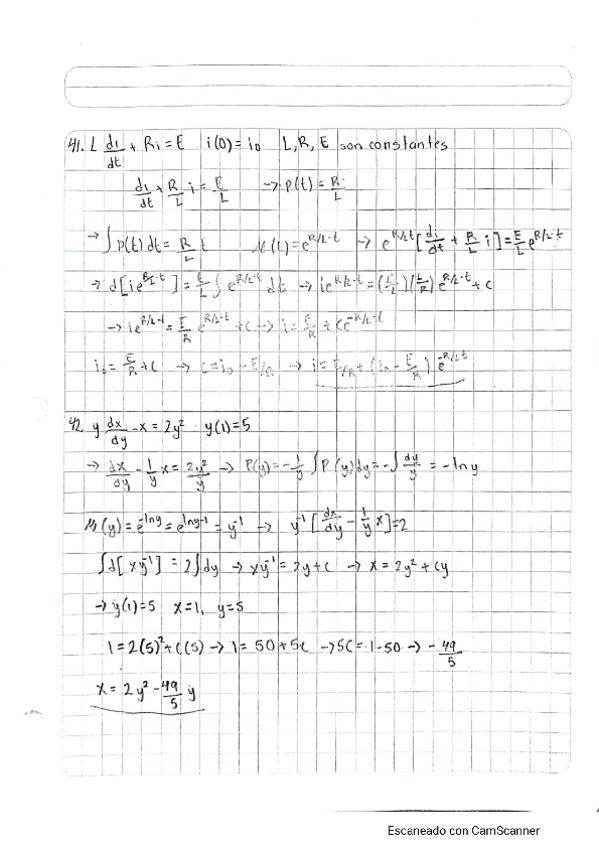 41. L di/dt + Ri = E   i(0) = i₀   L, R, E son constantes
di/dt + R/L i = E/L   → P(t) = R/L
→ ∫P(t)dt = R/L t   μ(t) = e^(R/L·t) → e^(R/L t)[di/dt + R/L i] = E/L e^(R/L·t)
→ d[ie^(R/L·t)] = E/L ∫e^(R/L·t) dt → ie^(R/L·t) = (E/L)(L/R) e^(R/L·t) + c
→ ie^(R/L·t) = E/R e^(R/L·t) + c → i = E/R + Ce^(-R/L·t)
i₀ = E/R + C → C = i₀ - E/R → i = E/R + (i₀ - E/R) e^(-R/L t)
42. y dx/dy - x = 2y²   y(1) = 5
→ dx/dy - 1/y x = 2y²/y → P(y) = -1/y ∫P(y)dy = -∫dy/y = -ln y
μ(y) = e^(-ln y) = e^(ln y^-1) = y^-1 → y^-1 [dx/dy - 1/y x] = 2
∫d[xy^-1] = 2∫dy → xy^-1 = 2y + c → x = 2y² + cy
→ y(1) = 5   x = 1, y = 5
1 = 2(5)² + C(5) → 1 = 50 + 5C → 5C = 1 - 50 → -49/5
x = 2y² - 49/5 y
Escaneado con CamScanner